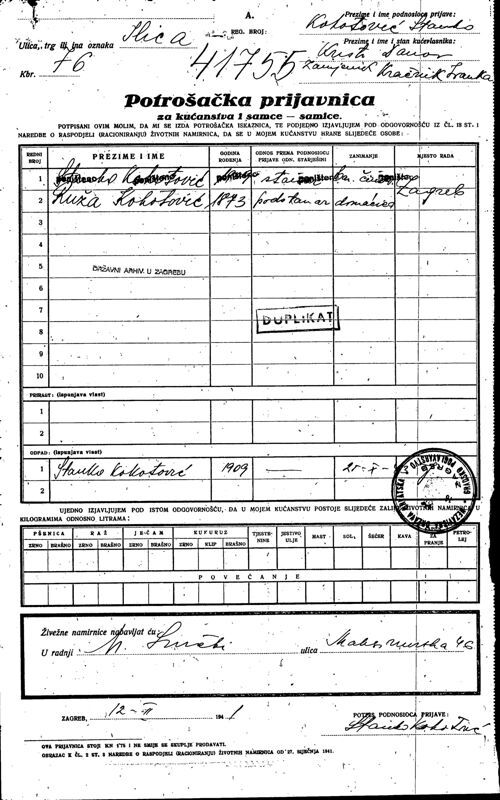 A.
Prezime i ime podnosioca prijave:
Kokotović Stanko
Ulica, trg ili ina oznaka
Ilica
REG. BROJ:
41755
Prezime i ime i stan kućevlasnika:
Kbr. 76
Potrošačka prijavnica
za kućanstva i samce — samice.
POTPISANI OVIM MOLIM, DA MI SE IZDA POTROŠAČKA ISKAZNICA, TE PODJEDNO IZJAVLJUJEM POD ODGOVORNOŠĆU IZ ČL. 18 ST. 1
NAREDBE O RASPODJELI (RACIONIRANJU) ŽIVOTNIH NAMIRNICA, DA SE U MOJEM KUĆANSTVU HRANE SLIJEDEĆE OSOBE:
REDNI BROJ PREZIME I IME GODINA ROĐENJA ODNOS PREMA PODNOSIOCU PRIJAVE ODN. STARJEŠINI ZANIMANJE MJESTO RADA
1 Stanko Kokotović Zagreb
2 Ruža Kokotović 1873 podstanar domaćica
3
4
5
DRŽAVNI ARHIV U ZAGREBU
6
7
DUPLIKAT
8
9
10
PRIRAST: (ispunjava vlast)
1
2
OTPAD: (ispunjava vlast)
1 Stanko Kokotović 1909 — 21-X-
2
UJEDNO IZJAVLJUJEM POD ISTOM ODGOVORNOŠĆU, DA U MOJEM KUĆANSTVU POSTOJE SLIJEDEĆE ZALIHE ŽIVOTNIH NAMIRNICA U
KILOGRAMIMA ODNOSNO LITRAMA:
PŠENICA RAŽ JEČAM KUKURUZ TJESTENINE JESTIVO ULJE MAST SOL, ŠEĆER KAVA ZA PRANJE PETROLEJ
ZRNO BRAŠNO ZRNO BRAŠNO ZRNO BRAŠNO ZRNO KLIP BRAŠNO
POVEĆANJE
Živežne namirnice nabavljat ću:
U radnji ulica 46
ZAGREB, 12-II 1941
POTPIS PODNOSIOCA PRIJAVE:
Stanko Kokotović
OVA PRIJAVNICA STOJI KN 1'75 I NE SMIJE SE SKUPLJE PRODAVATI.
OBRAZAC K ČL. 2 ST. 3 NAREDBE O RASPODJELI (RACIONIRANJU) ŽIVOTNIH NAMIRNICA OD 27. SIJEČNJA 1941.